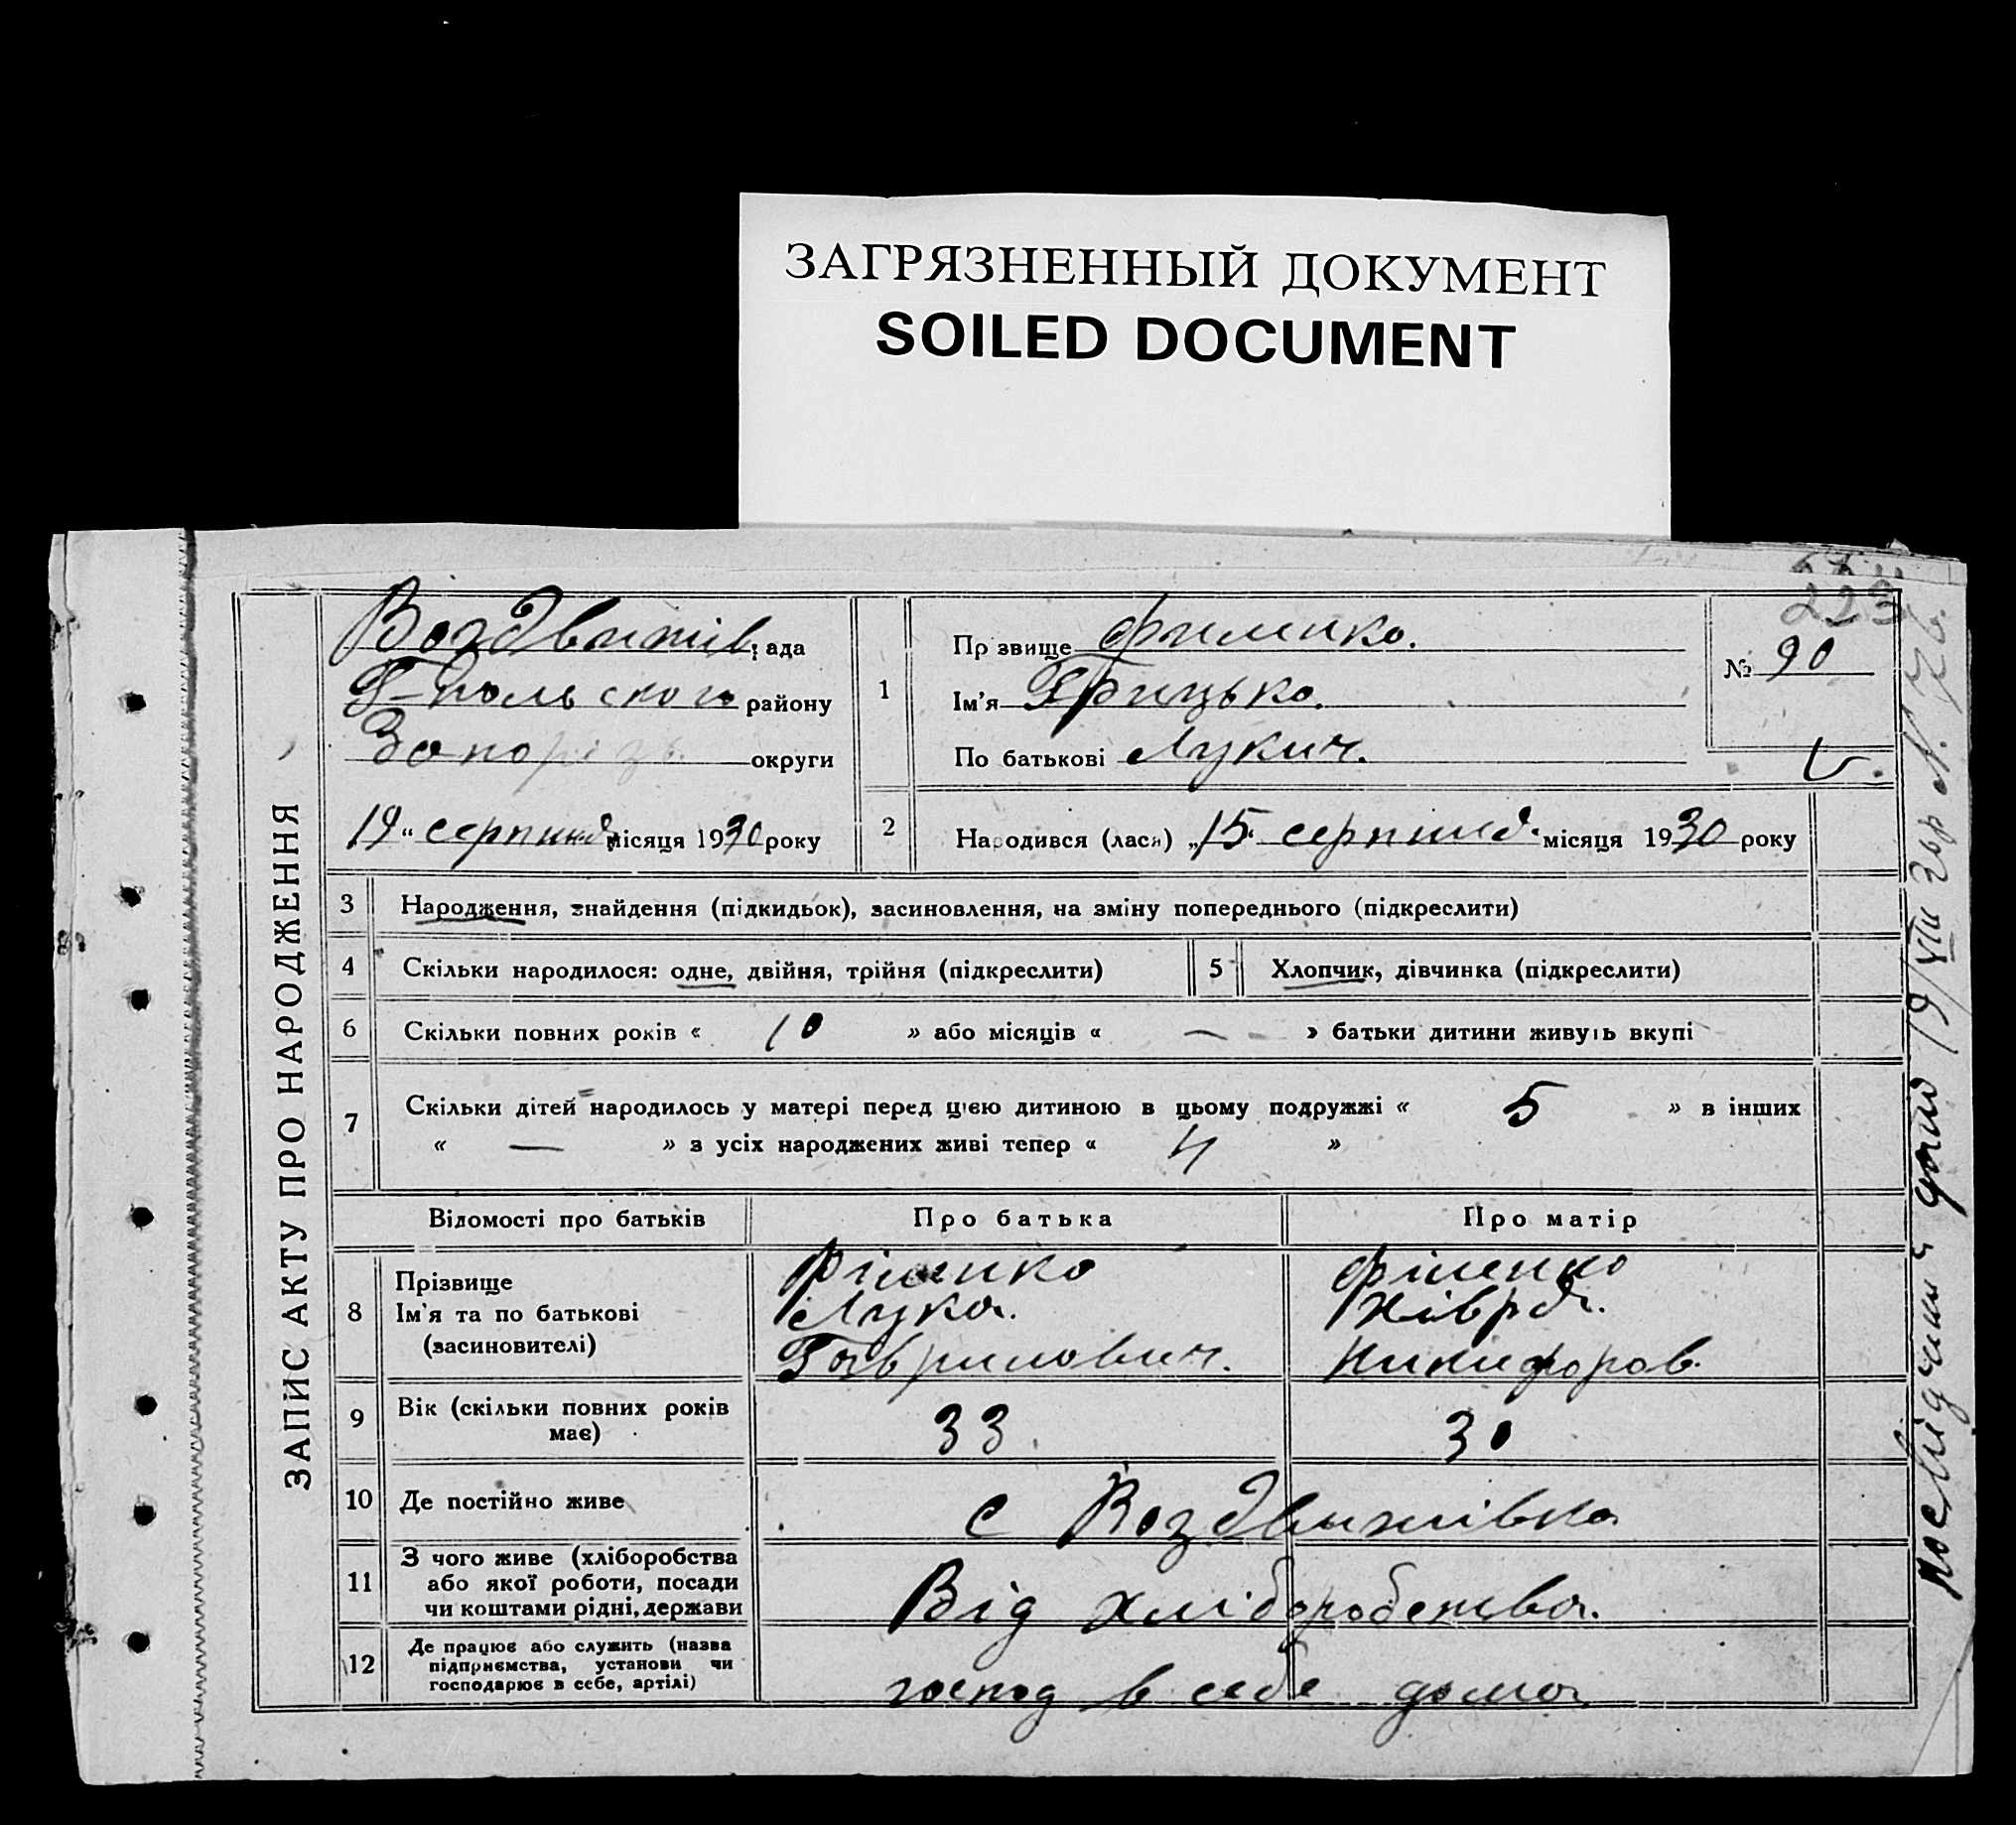 ЗАГРЯЗНЕННЫЙ ДОКУМЕНТ
SOILED DOCUMENT
223
ЗАПИС АКТУ ПРО НАРОДЖЕННЯ
Воздвижів рада
Г-польского району
Запорізь. округи
19 „ серпня місяця 1930 року
1
Прізвище Филенко.
Ім'я Грицько.
По батькові Лукич.
№ 90
2 Народився (лася) „15" серпня місяця 1930 року
3 Народження, знайдення (підкидьок), засиновлення, на зміну попереднього (підкреслити)
4 Скільки народилося: одне, двійня, трійня (підкреслити) 5 Хлопчик, дівчинка (підкреслити)
6 Скільки повних років « 10 » або місяців « — » батьки дитини живуть вкупі
7 Скільки дітей народилось у матері перед цією дитиною в цьому подружжі « 5 » в інших
« — » з усіх народжених живі тепер « 4 »
Відомості про батьків Про батька Про матір
8 Прізвище Філенко Філенко
Ім'я та по батькові Лука. Хівря.
(засиновителі) Гаврилович. Никифоров.
9 Вік (скільки повних років має) 33 30
10 Де постійно живе с Воздвижівка
11 З чого живе (хліборобства
або якої роботи, посади
чи коштами рідні, держави Від хліборобства.
12 Де працює або служить (назва
підприємства, установи чи
господарює в себе, артілі) господ в себе дома
19/VIII 30р №